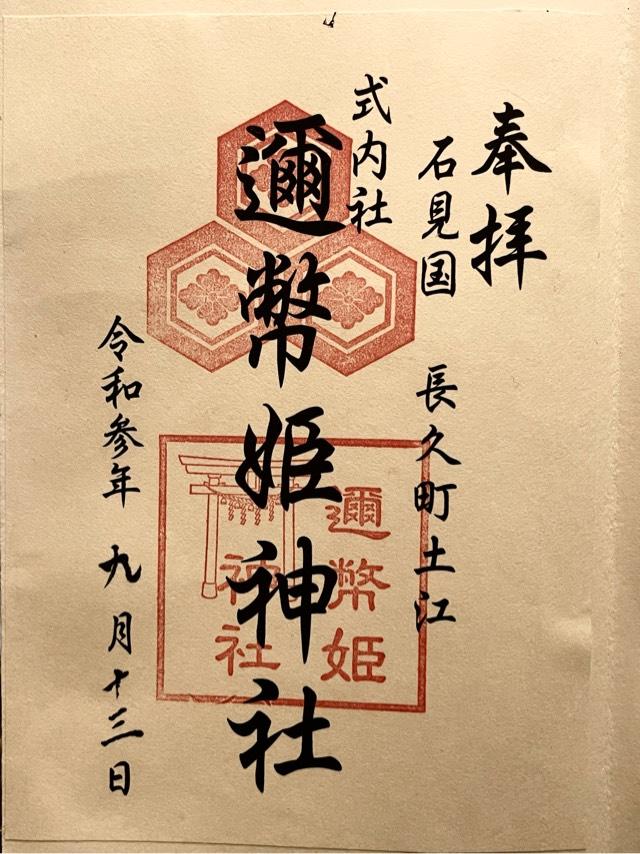 奉拝
石見国 長久町土江
式内社
邇幣姫神社
邇幣姫
神社
令和参年 九月十三日